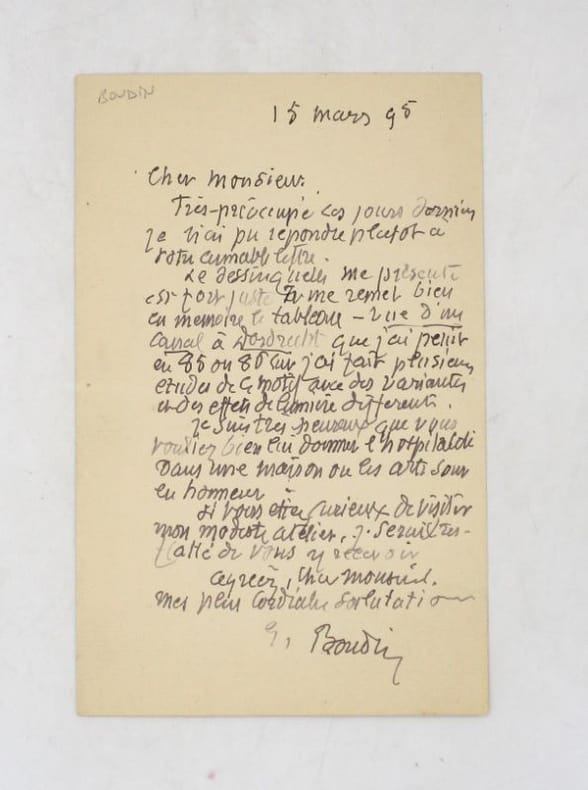 BOUDIN
15 mars 95
Cher Monsieur.
Très-préoccupé ces jours derniers
je n'ai pu repondre plutot a
votre aimable lettre.
Le dessin qu'elle me présente
est fort juste & me remet bien
en memoire le tableau - Vue d'un
Canal à Dordrecht que j'ai peint
en 85 ou 86 car j'ai fait plusieurs
etudes de ce motif avec des variantes
et des effets de lumière differents.
je suis tres heureux que vous
vouliez bien lui donner l'hospitalité
Dans une maison ou les arts sont
en honneur.
si vous etiez curieux de visiter
mon modeste atelier, je serais tres-
flatté de vous y recevoir
agréez, Cher monsieur.
mes plus cordiales salutations
E. Boudin